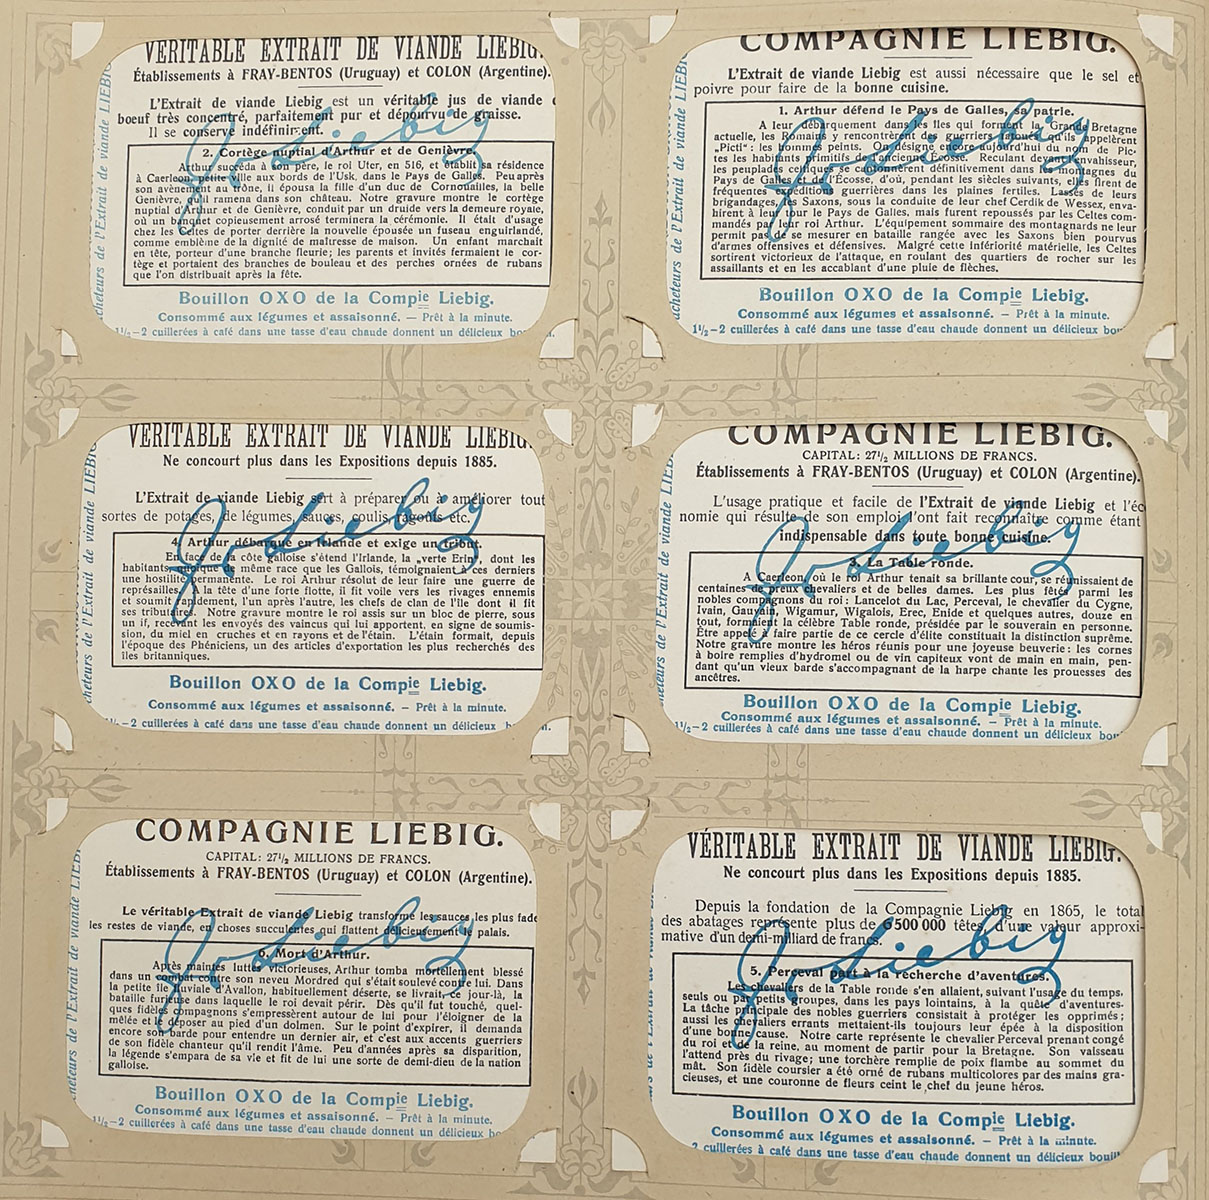 VÉRITABLE EXTRAIT DE VIANDE LIEBIG.
Établissements à FRAY-BENTOS (Uruguay) et COLON (Argentine).
L'Extrait de viande Liebig est un véritable jus de viande
bœuf très concentré, parfaitement pur et dépourvu de graisse.
Il se conserve indéfiniment.
2. Cortège nuptial d'Arthur et de Genièvre.
Arthur succéda à son père, le roi Uter, en 516, et établit sa résidence
à Caerleon, petite ville aux bords de l'Usk, dans le Pays de Galles. Peu après
son avènement au trône, il épousa la fille d'un duc de Cornouailles, la belle
Genièvre, qu'il ramena dans son château. Notre gravure montre le cortège
nuptial d'Arthur et de Genièvre, conduit par un druide vers la demeure royale,
où un banquet copieusement arrosé termina la cérémonie. Il était d'usage
chez les Celtes de porter derrière la nouvelle épousée un fuseau enguirlandé,
comme emblème de la dignité de maîtresse de maison. Un enfant marchait
en tête, porteur d'une branche fleurie; les parents et invités fermaient le cor-
tège et portaient des branches de bouleau et des perches ornées de rubans
que l'on distribuait après la fête.
Jo Liebig
acheteurs de l'Extrait de viande LIEBIG
Bouillon OXO de la Compie Liebig.
Consommé aux légumes et assaisonné. — Prêt à la minute.
1½–2 cuillerées à café dans une tasse d'eau chaude donnent un délicieux
COMPAGNIE LIEBIG.
L'Extrait de viande Liebig est aussi nécessaire que le sel et
poivre pour faire de la bonne cuisine.
1. Arthur défend le Pays de Galles, sa patrie.
A leur débarquement dans les îles qui forment la Grande Bretagne
actuelle, les Romains y rencontrèrent des guerriers tatoués qu'ils appelèrent
„Picti": les hommes peints. On désigne encore aujourd'hui du nom de Pic-
tes les habitants primitifs de l'ancienne Écosse. Reculant devant l'envahisseur,
les peuplades celtiques se cantonnèrent définitivement dans les montagnes du
Pays de Galles et de l'Écosse, d'où, pendant les siècles suivants, elles firent de
fréquentes expéditions guerrières dans les plaines fertiles. Lassés de leurs
brigandages, les Saxons, sous la conduite de leur chef Cerdik de Wessex, enva-
hirent à leur tour le Pays de Galles, mais furent repoussés par les Celtes com-
mandés par le roi Arthur. L'équipement sommaire des montagnards ne leur
permit pas de se mesurer en bataille rangée avec les Saxons bien pourvus
d'armes offensives et défensives. Malgré cette infériorité matérielle, les Celtes
sortirent victorieux de l'attaque, en roulant des quartiers de rocher sur les
assaillants et en les accablant d'une pluie de flèches.
Jo Liebig
acheteurs de l'Extrait de viande LIEBIG
Bouillon OXO de la Compie Liebig.
Consommé aux légumes et assaisonné. — Prêt à la minute.
1½–2 cuillerées à café dans une tasse d'eau chaude donnent un délicieux
VÉRITABLE EXTRAIT DE VIANDE LIEBIG.
Ne concourt plus dans les Expositions depuis 1885.
L'Extrait de viande Liebig sert à préparer ou à améliorer tout
sortes de potages, de légumes, sauces, coulis, ragoûts etc.
4. Arthur débarque en Irlande et exige un tribut.
En face de la côte galloise s'étend l'Irlande, la „verte Erin", dont les
habitants, quoique de même race que les Gallois, témoignaient à ces derniers
une hostilité permanente. Le roi Arthur résolut de leur faire une guerre de
représailles. A la tête d'une forte flotte, il fit voile vers les rivages ennemis
et soumit rapidement, l'un après l'autre, les chefs de clan de l'île dont il fit
ses tributaires. Notre gravure montre le roi assis sur un bloc de pierre, sous
un if, recevant les envoyés des vaincus qui lui apportent, en signe de soumis-
sion, du miel en cruches et en rayons et de l'étain. L'étain formait, depuis
l'époque des Phéniciens, un des articles d'exportation les plus recherchés des
îles britanniques.
Jo Liebig
acheteurs de l'Extrait de viande LIEBIG
Bouillon OXO de la Compie Liebig.
Consommé aux légumes et assaisonné. — Prêt à la minute.
–2 cuillerées à café dans une tasse d'eau chaude donnent un délicieux
COMPAGNIE LIEBIG.
CAPITAL: 27½ MILLIONS DE FRANCS.
Établissements à FRAY-BENTOS (Uruguay) et COLON (Argentine).
L'usage pratique et facile de l'Extrait de viande Liebig et l'éc
nomie qui résulte de son emploi l'ont fait reconnaître comme étant
indispensable dans toute bonne cuisine.
3. La Table ronde.
A Caerleon, où le roi Arthur tenait sa brillante cour, se réunissaient de
centaines de preux chevaliers et de belles dames. Les plus fêtés parmi les
nobles compagnons du roi: Lancelot du Lac, Perceval, le chevalier du Cygne,
Ivain, Gauvain, Wigamur, Wigalois, Erec, Enide et quelques autres, douze en
tout, formaient la célèbre Table ronde, présidée par le souverain en personne.
Être appelé à faire partie de ce cercle d'élite constituait la distinction suprême.
Notre gravure montre les héros réunis pour une joyeuse beuverie: les cornes
à boire remplies d'hydromel ou de vin capiteux vont de main en main, pen-
dant qu'un vieux barde s'accompagnant de la harpe chante les prouesses des
ancêtres.
Jo Liebig
acheteurs de l'Extrait de viande LIEBIG
Bouillon OXO de la Compie Liebig.
Consommé aux légumes et assaisonné. — Prêt à la minute.
1½–2 cuillerées à café dans une tasse d'eau chaude donnent un délicieux
COMPAGNIE LIEBIG.
CAPITAL: 27½ MILLIONS DE FRANCS.
Établissements à FRAY-BENTOS (Uruguay) et COLON (Argentine).
Le véritable Extrait de viande Liebig transforme les sauces les plus fade
les restes de viande, en choses succulentes qui flattent délicieusement le palais.
6. Mort d'Arthur.
Après maintes luttes victorieuses, Arthur tomba mortellement blessé
dans un combat contre son neveu Mordred qui s'était soulevé contre lui. Dans
la petite île fluviale d'Avallon, habituellement déserte, se livrait, ce jour-là, la
bataille furieuse dans laquelle le roi devait périr. Dès qu'il fut touché, quel-
ques fidèles compagnons s'empressèrent autour de lui pour l'éloigner de la
mêlée et le déposer au pied d'un dolmen. Sur le point d'expirer, il demanda
encore son barde pour entendre un dernier air, et c'est aux accents guerriers
de son fidèle chanteur qu'il rendit l'âme. Peu d'années après sa disparition,
la légende s'empara de sa vie et fit de lui une sorte de demi-dieu de la nation
galloise.
Jo Liebig
acheteurs de l'Extrait de viande LIEBIG
Bouillon OXO de la Compie Liebig.
Consommé aux légumes et assaisonné. — Prêt à la minute.
1½–2 cuillerées à café dans une tasse d'eau chaude donnent un délicieux
VÉRITABLE EXTRAIT DE VIANDE LIEBIG.
Ne concourt plus dans les Expositions depuis 1885.
Depuis la fondation de la Compagnie Liebig en 1865, le total
des abatages représente plus de 6 500 000 têtes, d'une valeur approxi-
mative d'un demi-milliard de francs.
5. Perceval part à la recherche d'aventures.
Les chevaliers de la Table ronde s'en allaient, suivant l'usage du temps,
seuls ou par petits groupes, dans les pays lointains, à la quête d'aventures.
La tâche principale des nobles guerriers consistait à protéger les opprimés;
aussi les chevaliers errants mettaient-ils toujours leur épée à la disposition
d'une bonne cause. Notre carte représente le chevalier Perceval prenant congé
du roi et de la reine, au moment de partir pour la Bretagne. Son vaisseau
l'attend près du rivage; une torchère remplie de poix flambe au sommet du
mât. Son fidèle coursier a été orné de rubans multicolores par des mains gra-
cieuses, et une couronne de fleurs ceint le chef du jeune héros.
Jo Liebig
Bouillon OXO de la Compie Liebig.
Consommé aux légumes et assaisonné. — Prêt à la minute.
2 cuillerées à café dans une tasse d'eau chaude donnent un délicieux